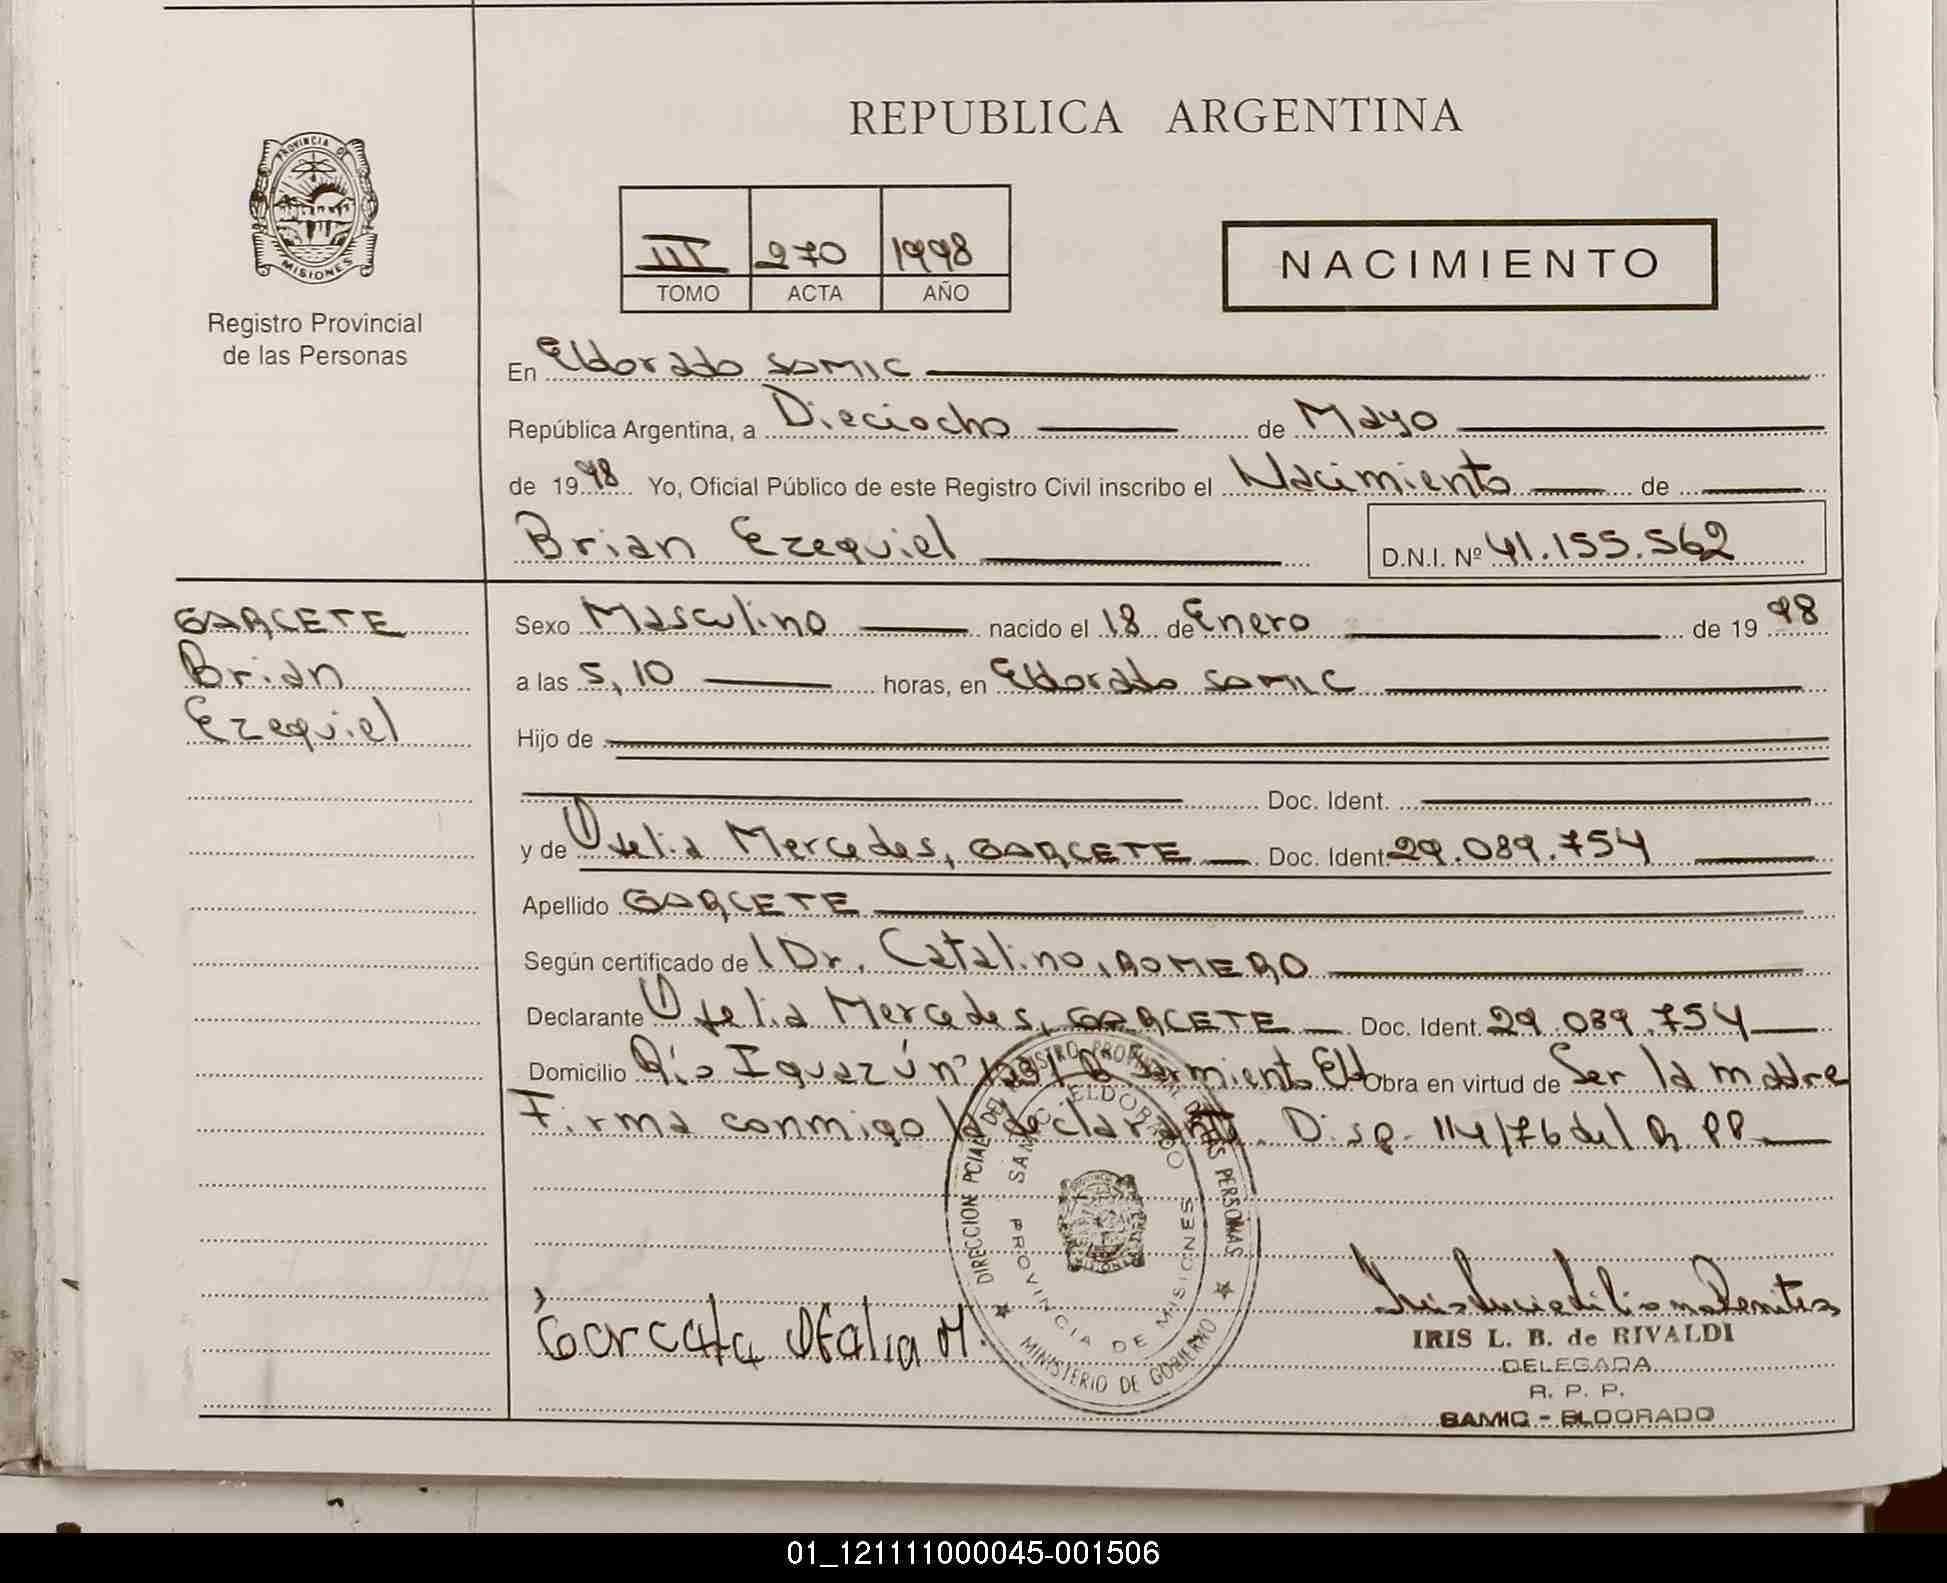 REPUBLICA ARGENTINA
PROVINCIA DE
MISIONES
Registro Provincial
de las Personas
III 270 1998
TOMO ACTA AÑO
NACIMIENTO
En Eldorado SAMIC
República Argentina, a Dieciocho de Mayo
de 1998 Yo, Oficial Público de este Registro Civil inscribo el Nacimiento de
Brian Ezequiel D.N.I. Nº 41.155.562
GARCETE
Brian
Ezequiel
Sexo Masculino nacido el 18 de Enero de 1998
a las 5,10 horas, en Eldorado SAMIC
Hijo de
Doc. Ident.
y de Ofelia Mercedes, GARCETE Doc. Ident. 29.089.754
Apellido GARCETE
Según certificado del Dr. Catalino, ROMERO
Declarante Ofelia Mercedes, GARCETE Doc. Ident. 29.089.754
Domicilio Río Iguazú nº Sarmiento Eld Obra en virtud de Ser la madre
Firma conmigo la declarante. Disp. 114/76 del R.PP.
DIRECCION PCIAL. DEL REGISTRO PROVINCIAL DE LAS PERSONAS
SAMIC ELDORADO
PROVINCIA DE MISIONES
MINISTERIO DE GOBIERNO
Garcete Ofelia M.
IRIS L. B. de RIVALDI
DELEGADA
R. P. P.
SAMIC - ELDORADO
01_121111000045-001506